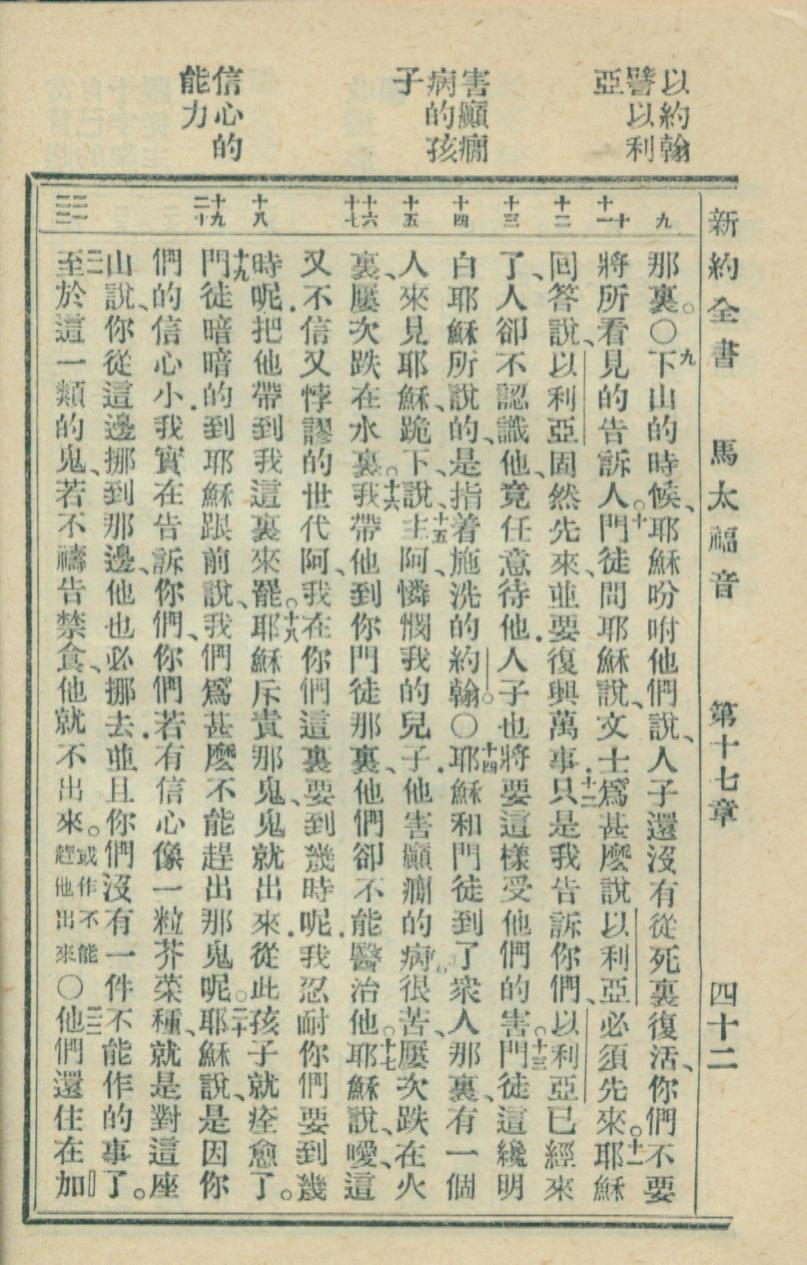 以約翰
譬以利
亞
害癲癎
病的孩
子
信心的
能力
新約全書 馬太福音 第十七章 四十二
九
十
十一
十二
十三
十四
十五
十六
十七
十八
十九
二十
二一
二二
那裏。〇九下山的時候、耶穌吩咐他們說、人子還沒有從死裏復活、你們不要
將所看見的告訴人。十門徒問耶穌說、文士爲甚麽說以利亞必須先來。十一耶穌
回答說、以利亞固然先來、並要復興萬事.十二只是我告訴你們、以利亞已經來
了、人卻不認識他、竟任意待他.人子也將要這樣受他們的害。十三門徒這纔明
白耶穌所說的、是指着施洗的約翰。〇十四耶穌和門徒到了衆人那裏、有一個
人來見耶穌、跪下、說、十五主阿、憐憫我的兒子.他害癲癎的病很苦、屢次跌在火
裏、屢次跌在水裏。十六我帶他到你門徒那裏、他們卻不能醫治他。十七耶穌說、噯、這
又不信又悖謬的世代阿、我在你們這裏要到幾時呢.我忍耐你們要到幾
時呢.把他帶到我這裏來罷。十八耶穌斥責那鬼、鬼就出來.從此孩子就痊愈了。
十九門徒暗暗的到耶穌跟前說、我們爲甚麽不能趕出那鬼呢。二十耶穌說、是因你
們的信心小.我實在告訴你們、你們若有信心像一粒芥菜種、就是對這座
山說、你從這邊挪到那邊、他也必挪去.並且你們沒有一件不能作的事了。
二一至於這一類的鬼、若不禱告禁食、他就不出來。或作不能趕他出來〇二二他們還住在加